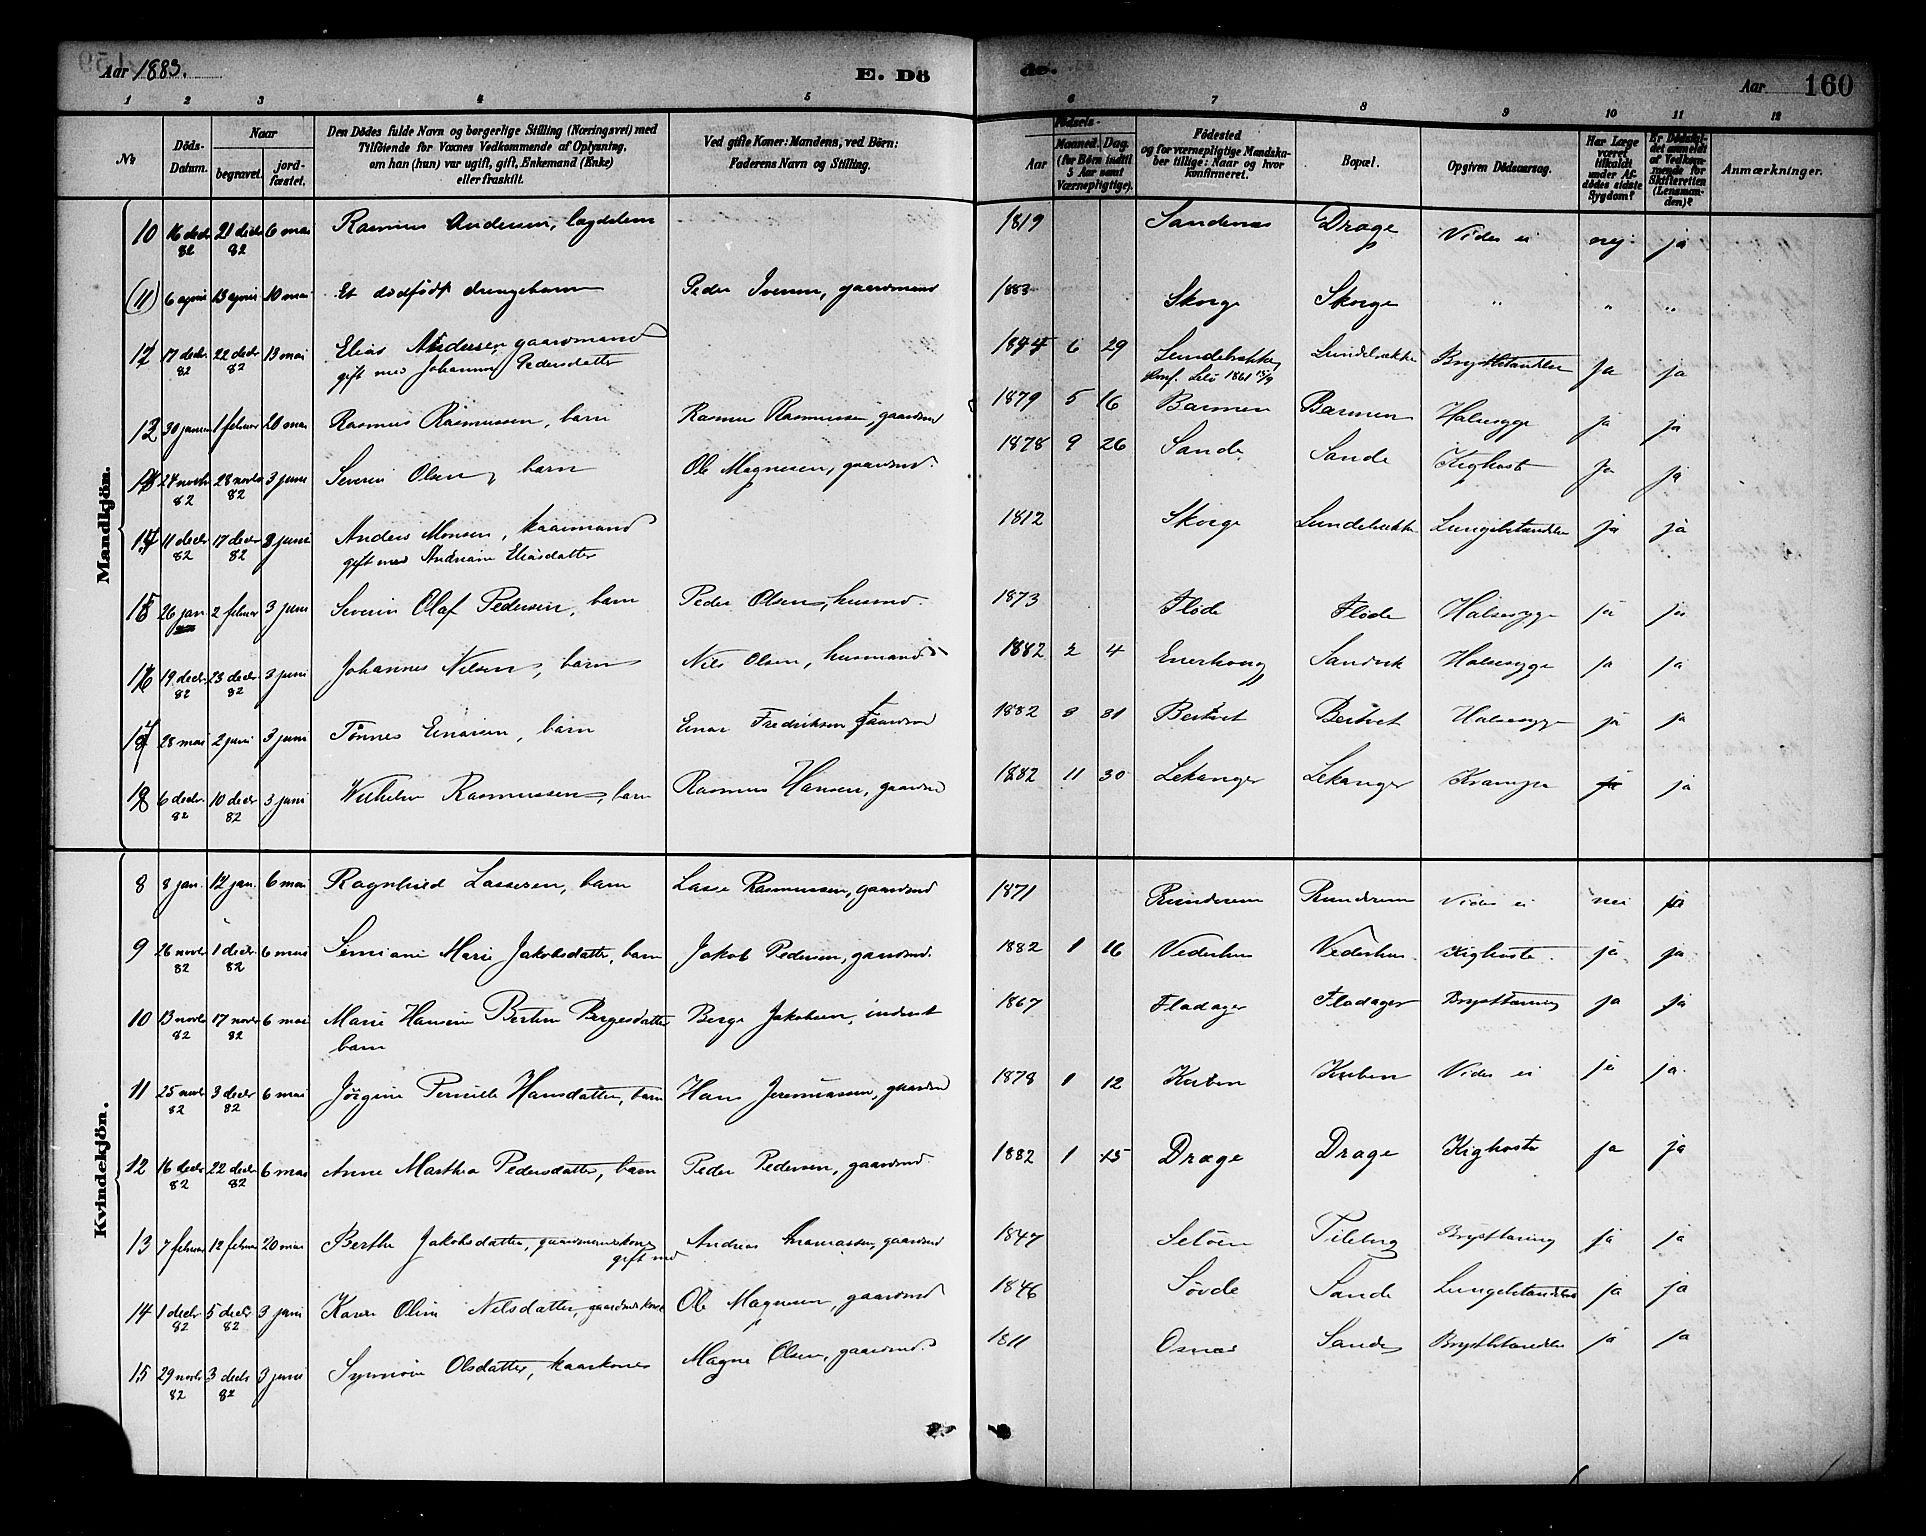 Aar 1883.
E. Dö
de.
Aar 160
1 2 3 4 5 6 7 8 9 10 11 12
No
Döds-Datum.
Naar
begravet.
jordfæstet.
Den Dödes fulde Navn og borgerlige Stilling (Næringsvei) med
Tilföiende for Voxnes Vedkommende af Oplysning,
om han (hun) var ugift, gift, Enkemand (Enke)
eller fraskilt.
Ved gifte Koner: Mandens, ved Börn:
Faderens Navn og Stilling.
Födsels-
Aar
Maaned. Dag.
(for Börn indtil
5 Aar samt
Værnepligtige).
Födested
og for værnepligtige Mandska-
ber tillige: Naar og hvor
konfirmeret.
Bopæl.
Opgiven Dödsaarsag.
Har Læge
været
tilkaldt
under Af-
dödes sidste
Sygdom?
Er Dödsfal-
det anmeldt
af Vedkom-
mende for
Skifteretten
(Lensman-
den)?
Anmærkninger.
Mandkjön.
10 16 decbr 82 21 decbr 82 6 mai Rasmus Andersen, lægdslem 1819 Sandenes Drage Vides ei nej ja
(11) 6 april 13 april 10 mai Et dödfödt drengebarn Peder Iversen, gaardmand 1883 Skorge Skorge " " "
12 17 decbr. 82 22 decbr 82 13 mai Elias Andersen gaardmand 1844 6 29 Lundebrekke Lundebrekke Brystbetændelse Ja ja
gift med Johanne Pedersdatter konf. Selö 1861 15/9
13 30 januar 1 februar 20 mai Rasmus Rasmussen, barn Rasmus Rasmussen, gaardmd 1879 5 16 Barmen Barmen Halsesyge ja ja
24 novbr 82 28 novbr 82 3 juni Severin Olsen, barn Ole Magnesen, gaardmd. 1878 9 26 Sande Sande Kighoste Ja ja
14 11 decbr 82 17 decbr 82 3 juni Anders Monsen, kaarmand 1812 Skorge Lundebrekke Lungebetændelse ja ja
gift med Andriane Eliasdatter
15 26 jan 2 februar 3 juni Severin Olaf Pedersen, barn Peder Olsen, husmd. 1873 Flöde Flöde Halsesyge ja ja
16 19 decbr. 82 23 decbr. 82 3 juni Johannes Nilsen, barn Nils Olsen, husmand 1882 2 4 Enerhoug Sandvik Halsesyge ja ja
17 28 mai 2 juni 3 juni Tönnes Einarsen, barn Einar Fredriksen, gaardmd 1882 8 31 Berstvet Berstvet Halsesyge ja ja
18 6 decbr. 82 10 decbr 82 3 juni Wilhelm Rasmussen, barn Rasmus Hansen, gaardmd 1882 11 30 Lekanger Lekanger Krampe ja ja
Kvindekjön.
8 8 jan. 12 jan. 6 mai Ragnhild Lassesen, barn Lasse Rasmussen, gaardmd 1871 Runderem Runderem Vides ei nei ja
9 26 novbr 82 1 decbr. 82 6 mai Marie Jakobsdatter, barn Jakob Pedersen, gaardmd. 1882 1 16 Vederhus Vederhus Kighoste ja ja
10 13 novbr 82 17 novbr 82 6 mai Marie Hansine Bertine Bergesdatter Berge Jakobsen, inderst 1867 Fladager Fladager Brysttæring ja ja
barn
11 25 novbr 82 3 decbr 82 6 mai Jörgine Pernille Hansdatter, barn Hans Jeremiassen, gaardmd 1878 1 12 Kuben Kuben Vides ei ja ja.
12 16 decbr 82 22 decbr 82 6 mai Anne Marthea Pedersdatter, barn Peder Pedersen, gaardmd. 1882 1 15 Drage Drage Kighoste ja ja
13 7 februar 12 februar 20 mai Berthe Jakobsdatter, gaardmandskone Andreas Thomassen, gaardmd 1847 Selöen Tileberg Brysttæring ja ja
gift med
14 1 decbr 82 5 decbr 82 3 juni Karen Oline Nilsdatter, gaardmdskone Ole Magnesen, gaardmd 1846 Sövde Sande Lungebetændelse ja ja
15 29 novbr 82 3 decbr 82 3 juni Synnöve Olsdatter, kaarkone Magne Olsen, gaardmd. 1811 Osnes Sande Brystbetændelse ja ja